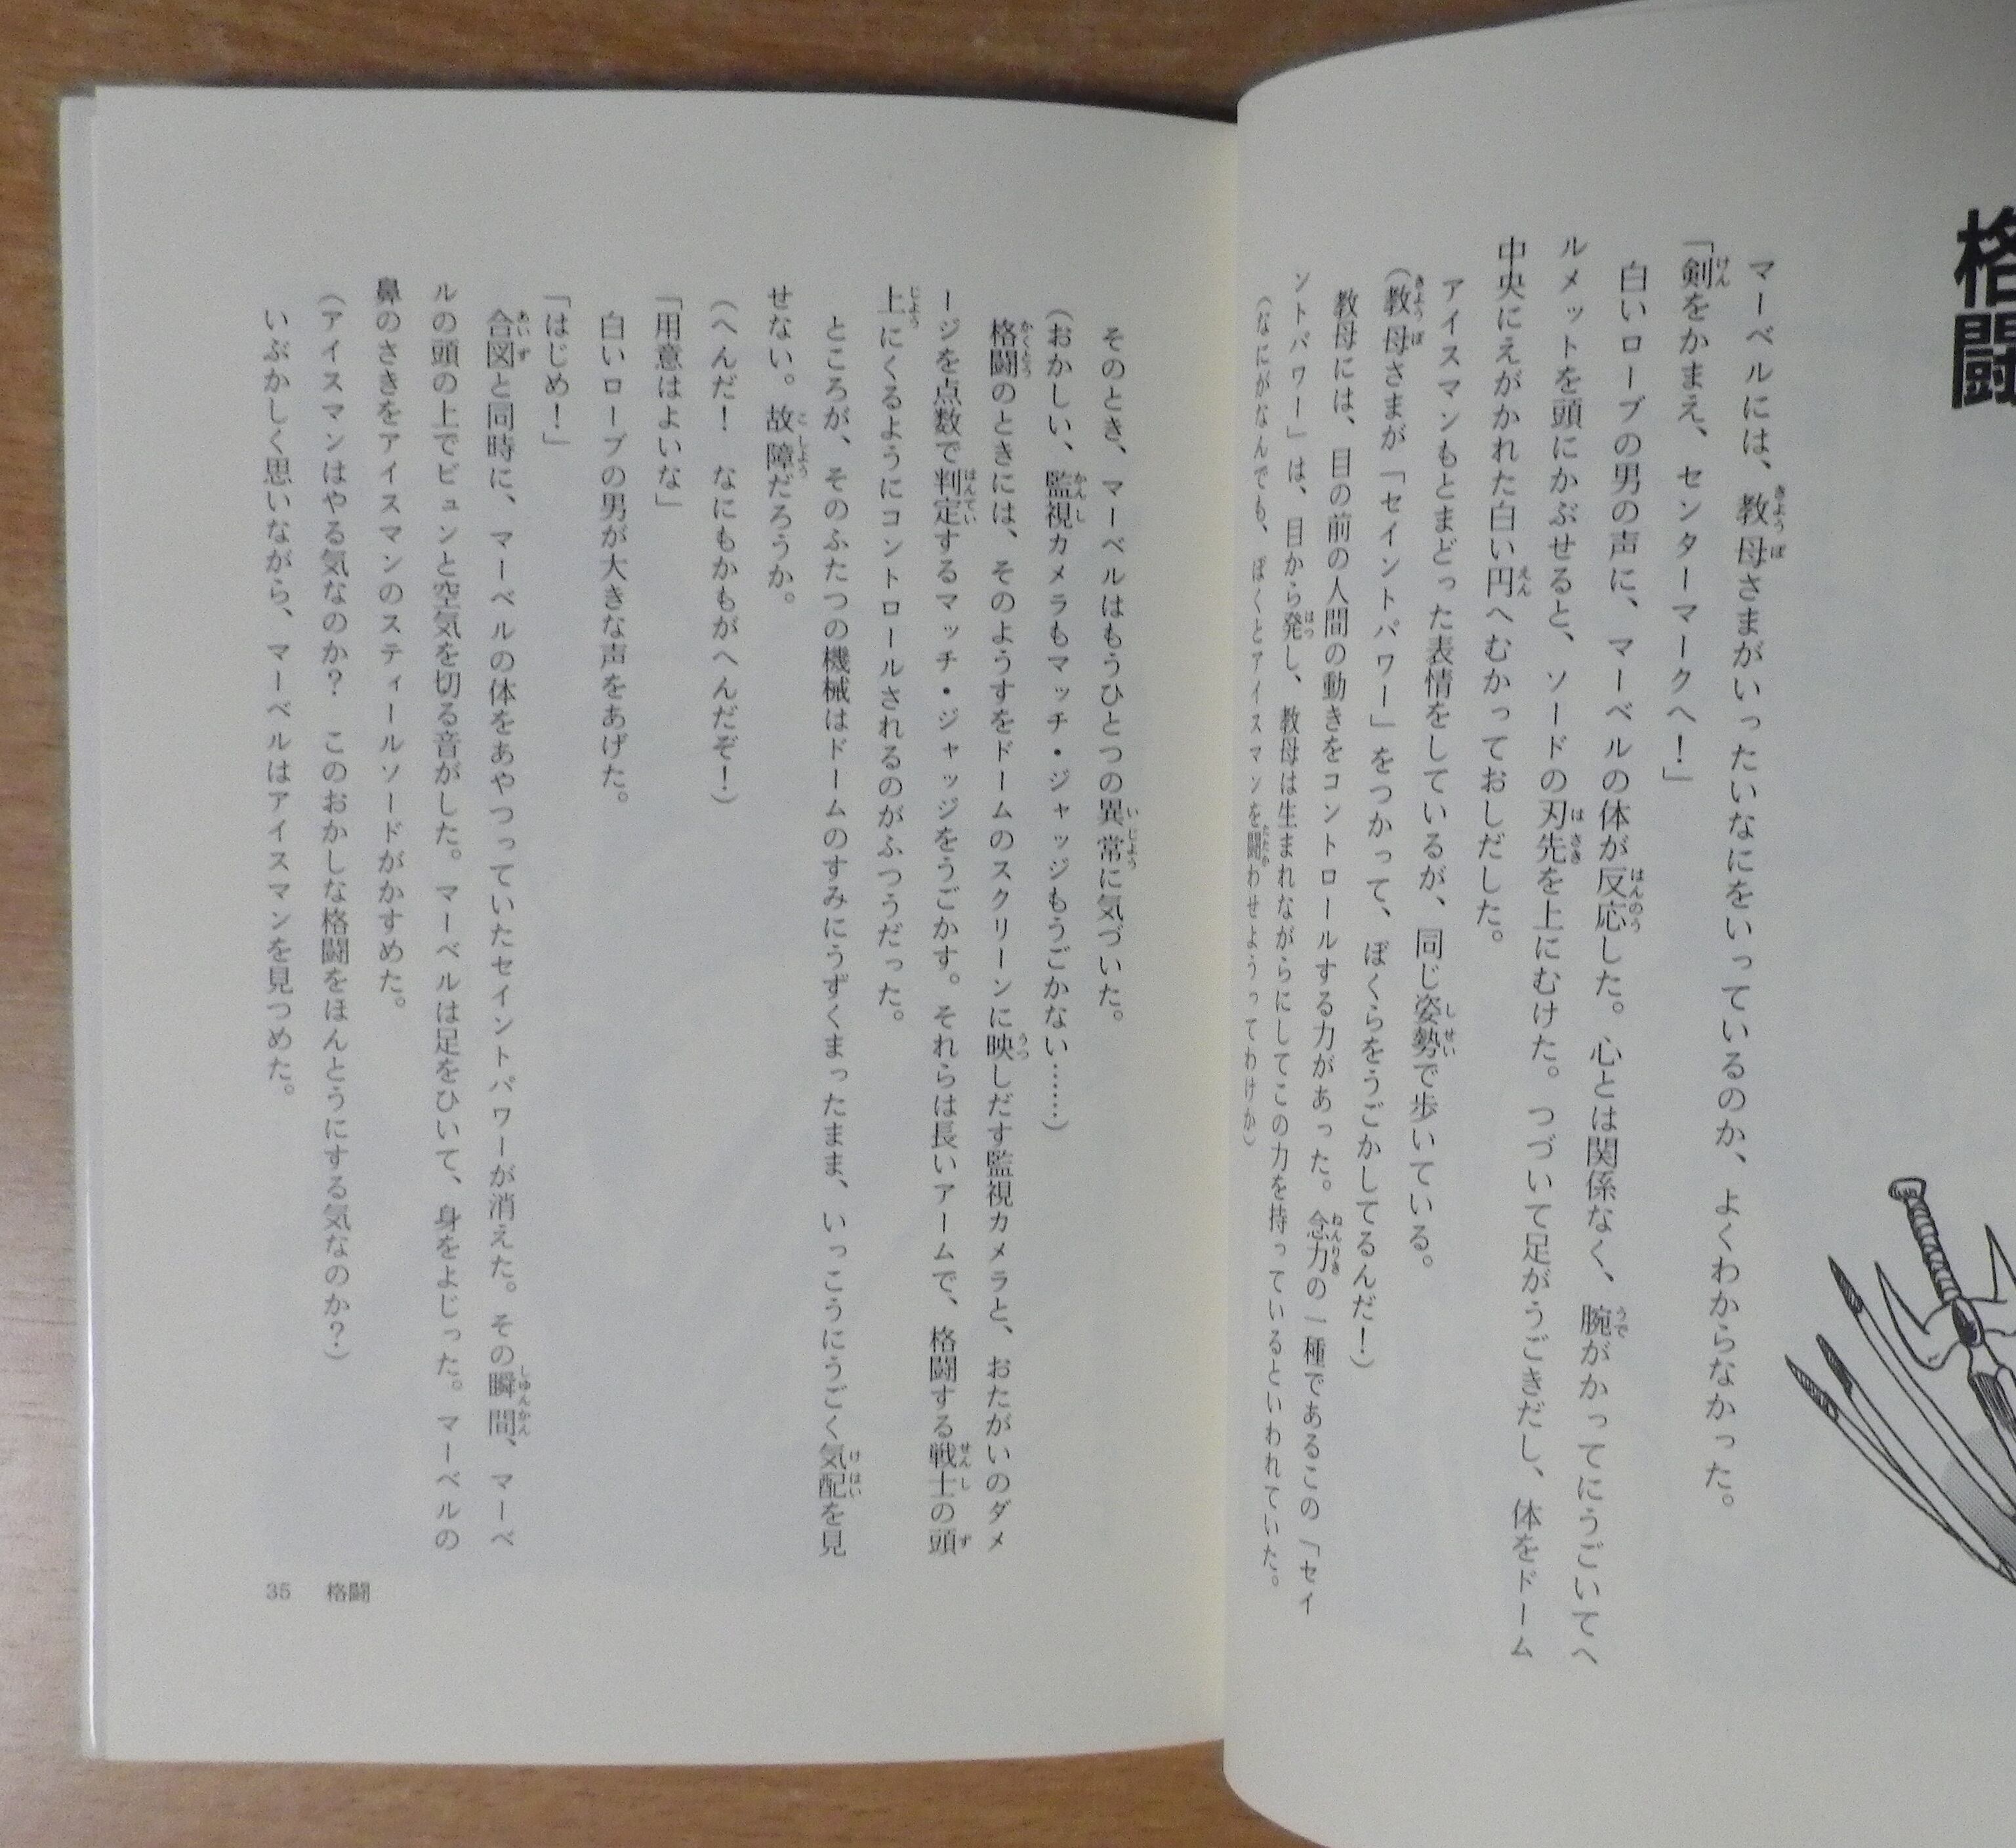 格闘
マーベルには、教母さまがいったいなにをいっているのか、よくわからなかった。
「剣をかまえ、センターマークへ！」
白いローブの男の声に、マーベルの体が反応した。心とは関係なく、腕がかってにうごいてヘ
ルメットを頭にかぶせると、ソードの刃先を上にむけた。つづいて足がうごきだし、体をドーム
中央にえがかれた白い円へむかっておしだした。
アイスマンもとまどった表情をしているが、同じ姿勢で歩いている。
（教母さまが「セイントパワー」をつかって、ぼくらをうごかしてるんだ！）
教母には、目の前の人間の動きをコントロールする力があった。念力の一種であるこの「セイ
ントパワー」は、目から発し、教母は生まれながらにしてこの力を持っているといわれていた。
（なにがなんでも、ぼくとアイスマンを闘わせようってわけか）
そのとき、マーベルはもうひとつの異常に気づいた。
（おかしい、監視カメラもマッチ・ジャッジもうごかない……）
格闘のときには、そのようすをドームのスクリーンに映しだす監視カメラと、おたがいのダメ
ージを点数で判定するマッチ・ジャッジをうごかす。それらは長いアームで、格闘する戦士の頭
上にくるようにコントロールされるのがふつうだった。
ところが、そのふたつの機械はドームのすみにうずくまったまま、いっこうにうごく気配を見
せない。故障だろうか。
（へんだ！　なにもかもがへんだぞ！）
「用意はよいな」
白いローブの男が大きな声をあげた。
「はじめ！」
合図と同時に、マーベルの体をあやつっていたセイントパワーが消えた。その瞬間、マーベ
ルの頭の上でビュンと空気を切る音がした。マーベルは足をひいて、身をよじった。マーベルの
鼻のさきをアイスマンのスティールソードがかすめた。
（アイスマンはやる気なのか？　このおかしな格闘をほんとうにする気なのか？）
いぶかしく思いながら、マーベルはアイスマンを見つめた。
35　格闘